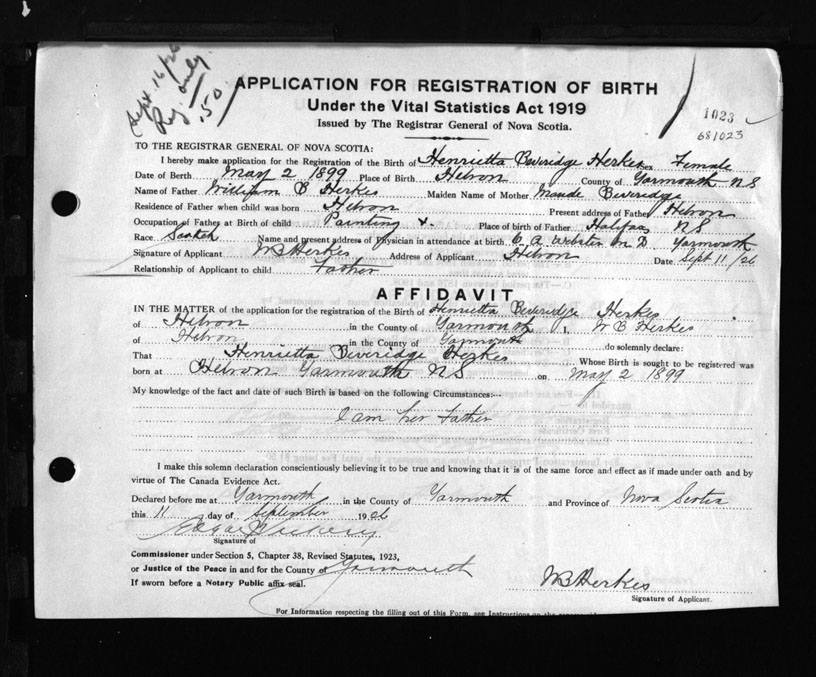 Sept. 16/26
Reg. only
.50
APPLICATION FOR REGISTRATION OF BIRTH
Under the Vital Statistics Act 1919
Issued by The Registrar General of Nova Scotia.
1023
681023
TO THE REGISTRAR GENERAL OF NOVA SCOTIA:
I hereby make application for the Registration of the Birth of Henrietta Beveridge Herkes Sex Female
Date of Birth May 2 1899 Place of Birth Hebron County of Yarmouth NS
Name of Father William B Herkes Maiden Name of Mother Maude Beveridge
Residence of Father when child was born Hebron Present address of Father Hebron
Occupation of Father at Birth of child Painting Place of birth of Father Halifax NS
Race Scotch Name and present address of Physician in attendance at birth C. A. Webster M D Yarmouth
Signature of Applicant WB Herkes Address of Applicant Hebron Date Sept 11/26
Relationship of Applicant to child Father
AFFIDAVIT
IN THE MATTER of the application for the registration of the Birth of Henrietta Beveridge Herkes
of Hebron in the County of Yarmouth I, W B Herkes
of Hebron in the County of Yarmouth do solemnly declare:
That Henrietta Beveridge Herkes Whose Birth is sought to be registered was
born at Hebron Yarmouth NS on May 2 1899
My knowledge of the fact and date of such Birth is based on the following Circumstances:--
I am her Father
I make this solemn declaration conscientiously believing it to be true and knowing that it is of the same force and effect as if made under oath and by
virtue of The Canada Evidence Act.
Declared before me at Yarmouth in the County of Yarmouth and Province of Nova Scotia
this 11 day of September 1926
Signature of
Commissioner under Section 5, Chapter 38, Revised Statutes, 1923,
or Justice of the Peace in and for the County of Yarmouth
If sworn before a Notary Public affix seal.
WB Herkes
Signature of Applicant.
For Information respecting the filling out of this Form, see Instructions on the